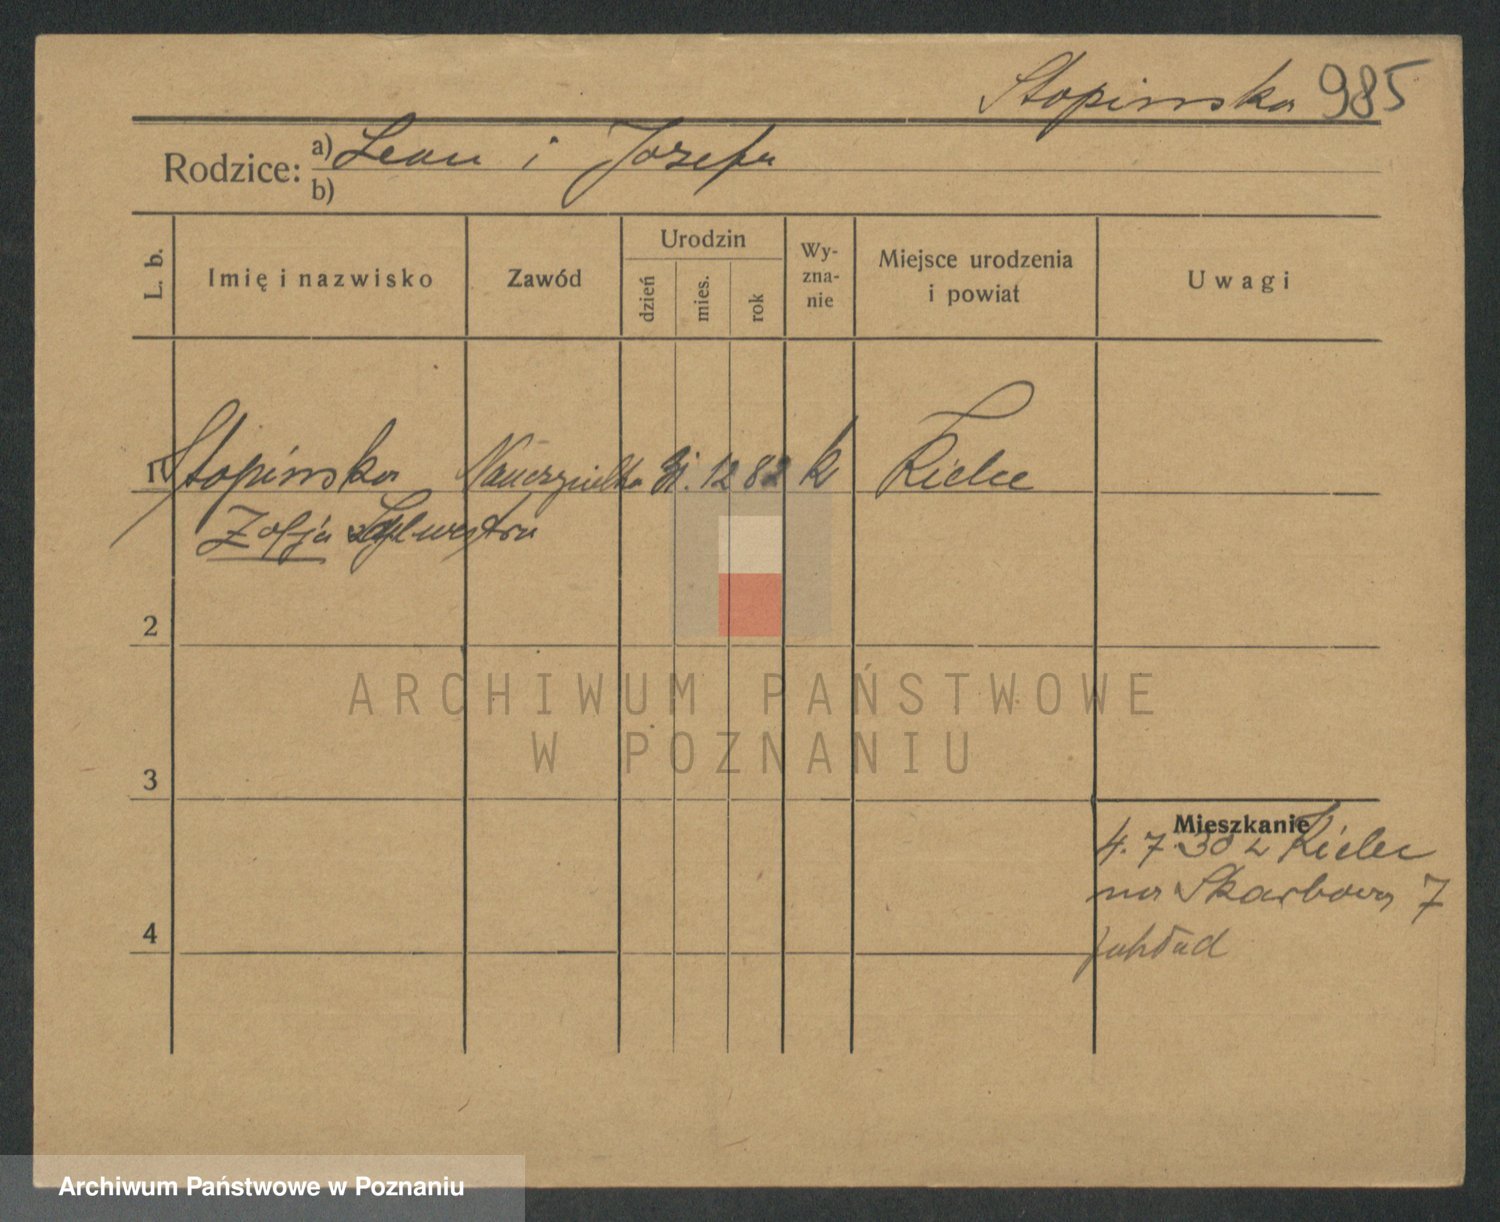 Stopinska 985
Rodzice: a) Leon i Józefa
b)
L. b. Imię i nazwisko Zawód Urodzin dzień mies. rok Wy-zna-nie Miejsce urodzenia i powiat Uwagi
1 Stopinska Nauczycielka 31. 12 82 k Kielce
Zofja Sylwestra
2
ARCHIWUM PAŃSTWOWE
W POZNANIU
3
Mieszkanie
4. 7. 30 z Kielc
na Skarbowa 7
4
Archiwum Państwowe w Poznaniu